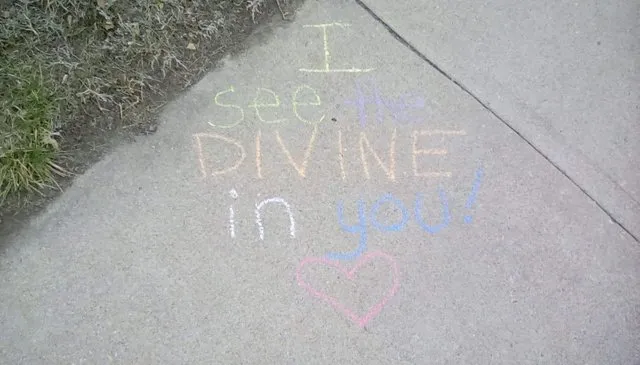 I
see the
DIVINE
in you!